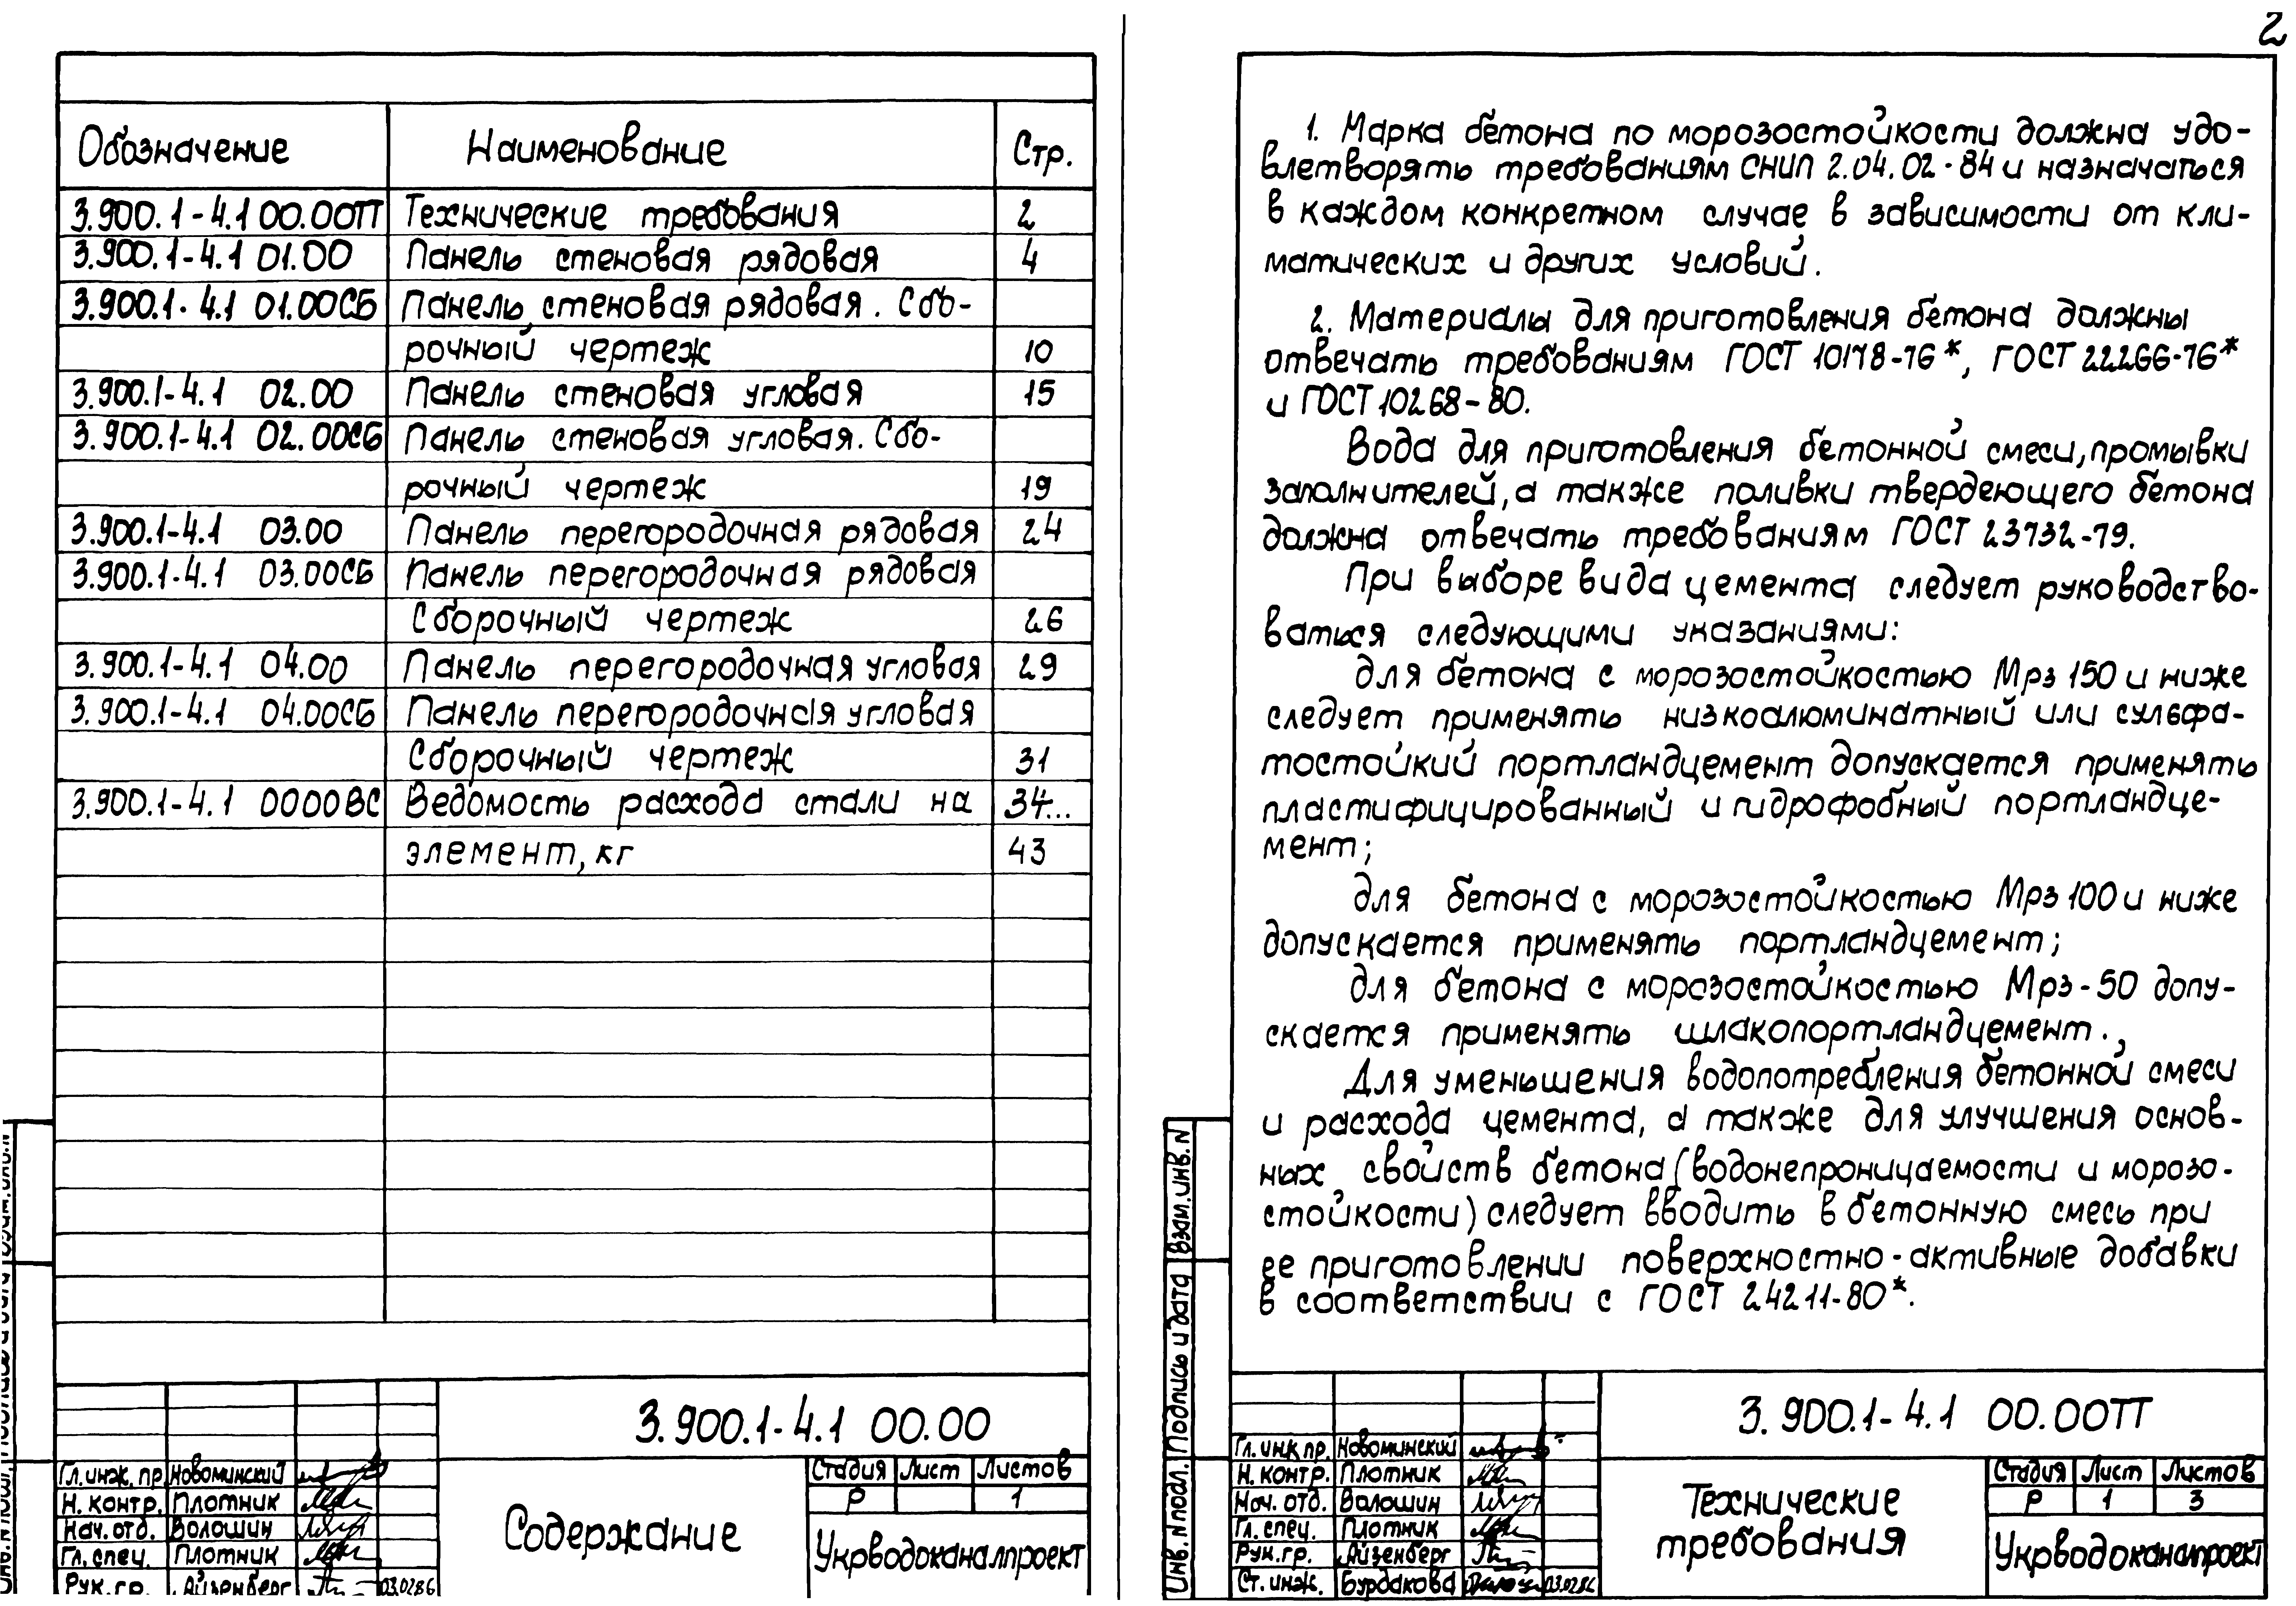 2
Обозначение Наименование Стр.
3.900.1-4.1 00.00ТТ Технические требования 2
3.900.1-4.1 01.00 Панель стеновая рядовая 4
3.900.1-4.1 01.00СБ Панель стеновая рядовая. Сбо-
рочный чертеж 10
3.900.1-4.1 02.00 Панель стеновая угловая 15
3.900.1-4.1 02.00СБ Панель стеновая угловая. Сбо-
рочный чертеж 19
3.900.1-4.1 03.00 Панель перегородочная рядовая 24
3.900.1-4.1 03.00СБ Панель перегородочная рядовая
Сборочный чертеж 26
3.900.1-4.1 04.00 Панель перегородочная угловая 29
3.900.1-4.1 04.00СБ Панель перегородочная угловая
Сборочный чертеж 31
3.900.1-4.1 0000ВС Ведомость расхода стали на 34...
элемент, кг 43
3.900.1-4.1 00.00
Гл. инж. пр. Новоминский
Н. контр. Плотник
Нач. отд. Волошин
Гл. спец. Плотник
Рук. гр. Айзенберг 03.02.86
Содержание
Стадия Лист Листов
Р 1
Укрводоканалпроект
1. Марка бетона по морозостойкости должна удо-
влетворять требованиям СНИП 2.04.02-84 и назначаться
в каждом конкретном случае в зависимости от кли-
матических и других условий.
2. Материалы для приготовления бетона должны
отвечать требованиям ГОСТ 10178-76*, ГОСТ 22266-76*
и ГОСТ 10268-80.
Вода для приготовления бетонной смеси, промывки
заполнителей, а также поливки твердеющего бетона
должна отвечать требованиям ГОСТ 23732-79.
При выборе вида цемента следует руководство-
ваться следующими указаниями:
для бетона с морозостойкостью Мрз 150 и ниже
следует применять низкоалюминатный или сульфа-
тостойкий портландцемент допускается применять
пластифицированный и гидрофобный портландце-
мент;
для бетона с морозостойкостью Мрз 100 и ниже
допускается применять портландцемент;
для бетона с морозостойкостью Мрз-50 допу-
скается применять шлакопортландцемент.
Для уменьшения водопотребления бетонной смеси
и расхода цемента, а также для улучшения основ-
ных свойств бетона (водонепроницаемости и морозо-
стойкости) следует вводить в бетонную смесь при
ее приготовлении поверхностно-активные добавки
в соответствии с ГОСТ 24211-80*.
Взам. инв. N
Подпись и дата
Инв. N подл.
3.900.1-4.1 00.00ТТ
Гл. инж. пр. Новоминский
Н. контр. Плотник
Нач. отд. Волошин
Гл. спец. Плотник
Рук. гр. Айзенберг
Ст. инж. Бурдакова 03.02.86
Технические
требования
Стадия Лист Листов
Р 1 3
Укрводоканалпроект